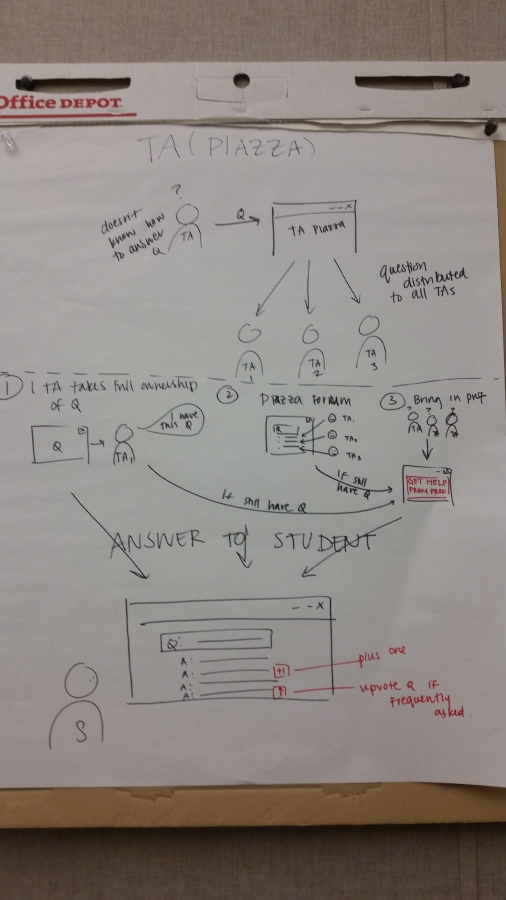 Office DEPOT
TA (PIAZZA)
?
doesn't
know how
to answer
Q
TA
Q
-- x
TA Piazza
question
distributed
to all TAs
TA
1
TA
2
TA
3
1 1 TA takes full ownership
of Q
Q
TA1
I have
this Q
2 Piazza Forum
Q
TA1
TA2
TA3
3 Bring in prof
? ? ?
TA
If still
have Q
If still have Q
GET HELP
FROM PROF
ANSWER TO STUDENT
-- x
Q:
A:
A:
A:
A:
+1
↑
plus one
upvote Q if
frequently
asked
S